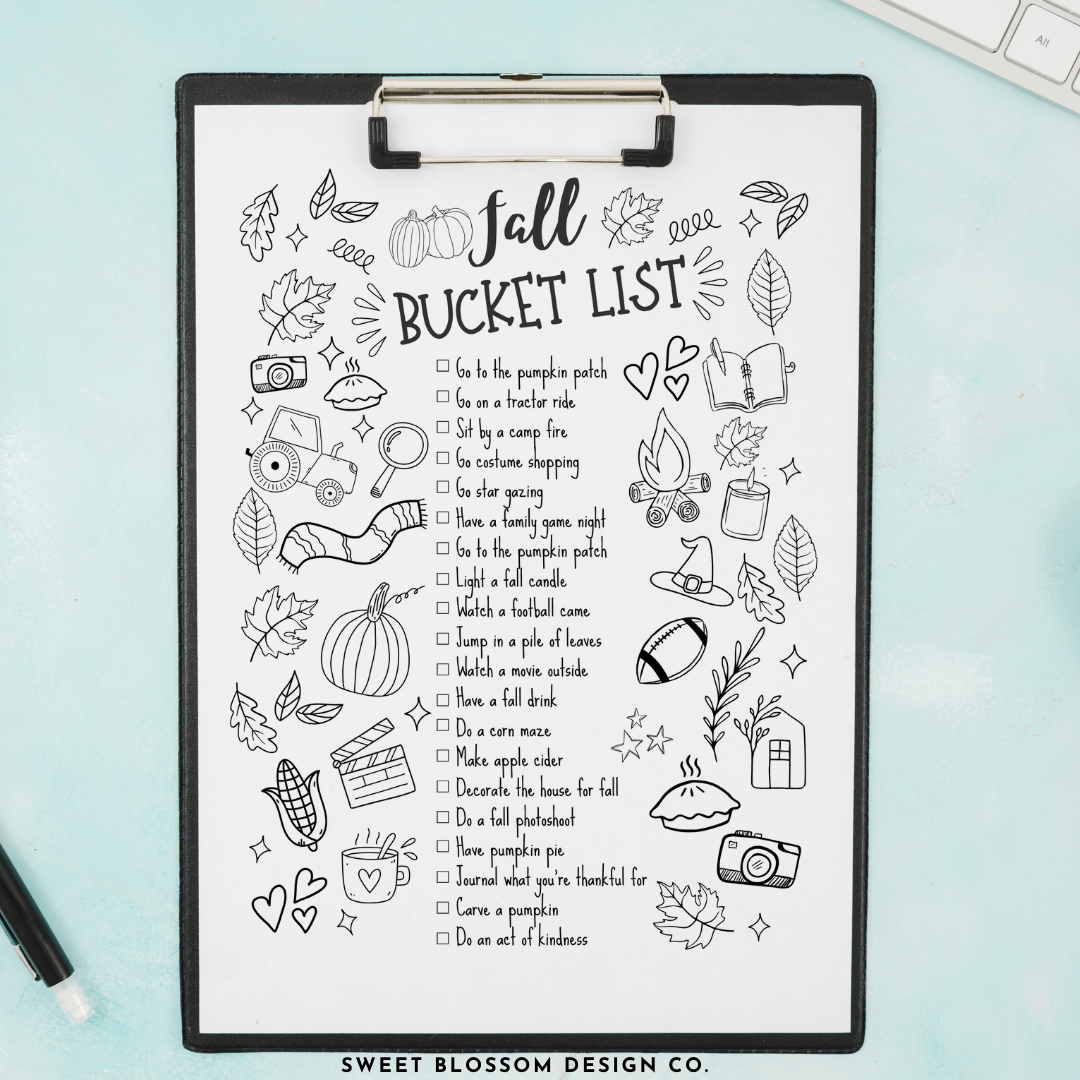 Alt
fall
BUCKET LIST
Go to the pumpkin patch
Go on a tractor ride
Sit by a camp fire
Go costume shopping
Go star gazing
Have a family game night
Go to the pumpkin patch
Light a fall candle
Watch a football came
Jump in a pile of leaves
Watch a movie outside
Have a fall drink
Do a corn maze
Make apple cider
Decorate the house for fall
Do a fall photoshoot
Have pumpkin pie
Journal what you're thankful for
Carve a pumpkin
Do an act of kindness
SWEET BLOSSOM DESIGN CO.